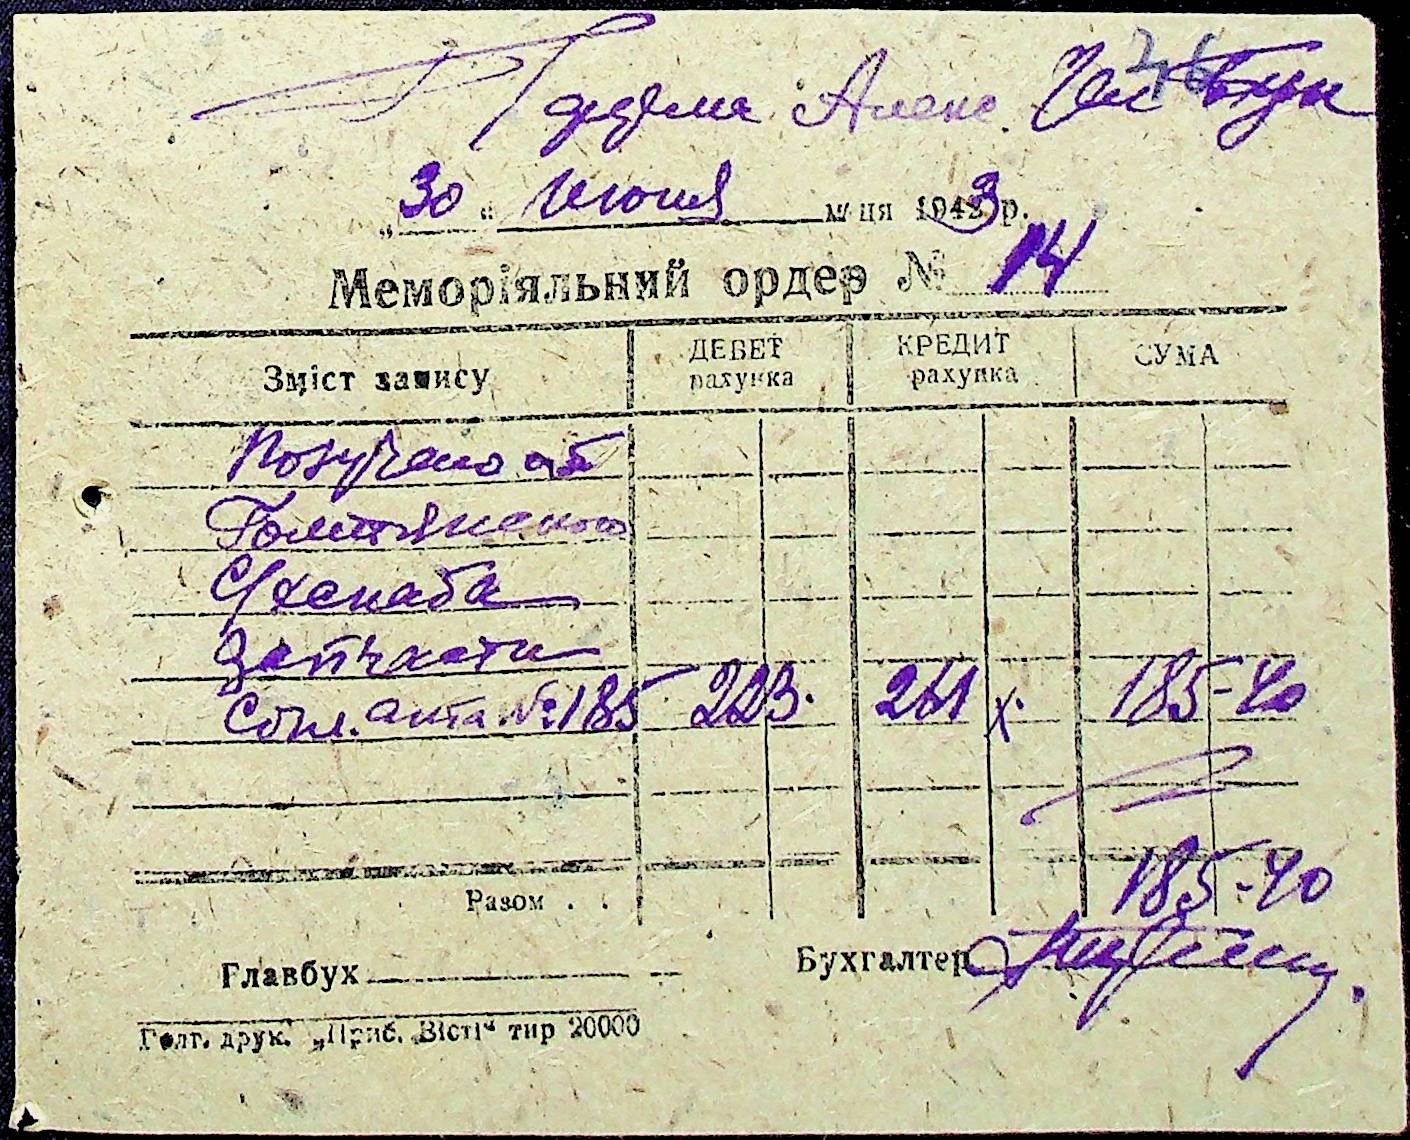 46
Алекс.
„30“ июня м/ця 1943 р.
Меморіяльний ордер № 14
Зміст запису ДЕБЕТ рахунка КРЕДИТ рахунка СУМА
Получено от
Голтянского
Сельхснаба
Запчасти
Согл. акта № 185 223. 261 х. 185-40
185-40
Разом . .
Главбух Бухгалтер
Голт. друк. „Приб. Вісті“ тир 20000